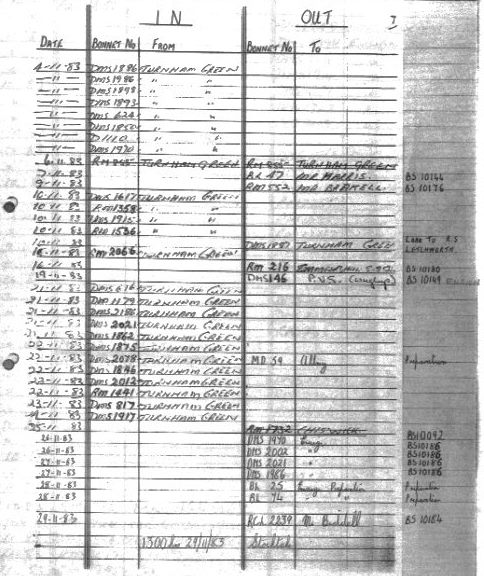 IN OUT I
DATE BONNET No FROM BONNET No TO
4-11-83 DMS1886 TURNHAM GREEN
—11— DMS1986 " "
—11— DMS1898 " "
—11— DMS1893 " "
—11— DMS 624 " "
—11— DMS1850 " "
—11— D1110 " "
—11— DMS1970 " "
6-11-83 RM 865 TURNHAM GREEN RM 865 TURNHAM GREEN
7-11-83 BL 47 MR HARRIS. BS 10144
9-11-83 RM 552 MR BRAKELL. BS 10176
10-11-83 DMS 1617 TURNHAM GREEN
10-11-83 RM 1358 " "
10-11-83 DMS 1915 " "
10-11-83 RM 1586 " "
10-11-83 DMS 1887 TURNHAM GREEN LOAN TO P.S. LETCHWORTH
15-11-83 RM 2066 TURNHAM GREEN
16-11-83 RM 216 BS 10180
19-11-83 DMS 146 P.V.S. BS 10149
21-11-83 DMS 676 TURNHAM GREEN
21-11-83 DMS 1179 TURNHAM GREEN
21-11-83 DMS 2186 TURNHAM GREEN
21-11-83 DMS 2021 TURNHAM GREEN
21-11-83 DMS 1862 TURNHAM GREEN
22-11-83 DMS 1875 TURNHAM GREEN
22-11-83 DMS 2078 TURNHAM GREEN MD 59 Preparation
22-11-83 DMS 1846 TURNHAM GREEN
22-11-83 DMS 2012 TURNHAM GREEN
22-11-83 RM 1441 TURNHAM GREEN
23-11-83 DMS 817 TURNHAM GREEN
24-11-83 DMS 1917 TURNHAM GREEN
25-11-83 RM 1732 CHISWICK
26-11-83 DMS 1970 Ensign BS10092
26-11-83 DMS 2002 " BS10186
27-11-83 DMS 2021 " BS10186
27-11-83 DMS 1986 " BS10186
28-11-83 BL 25 Ensign Preparation Preparation
28-11-83 BL 74 " " Preparation
29-11-83 RCL 2239 Mr BS 10184
1300 hrs 29/11/83 Stocktake